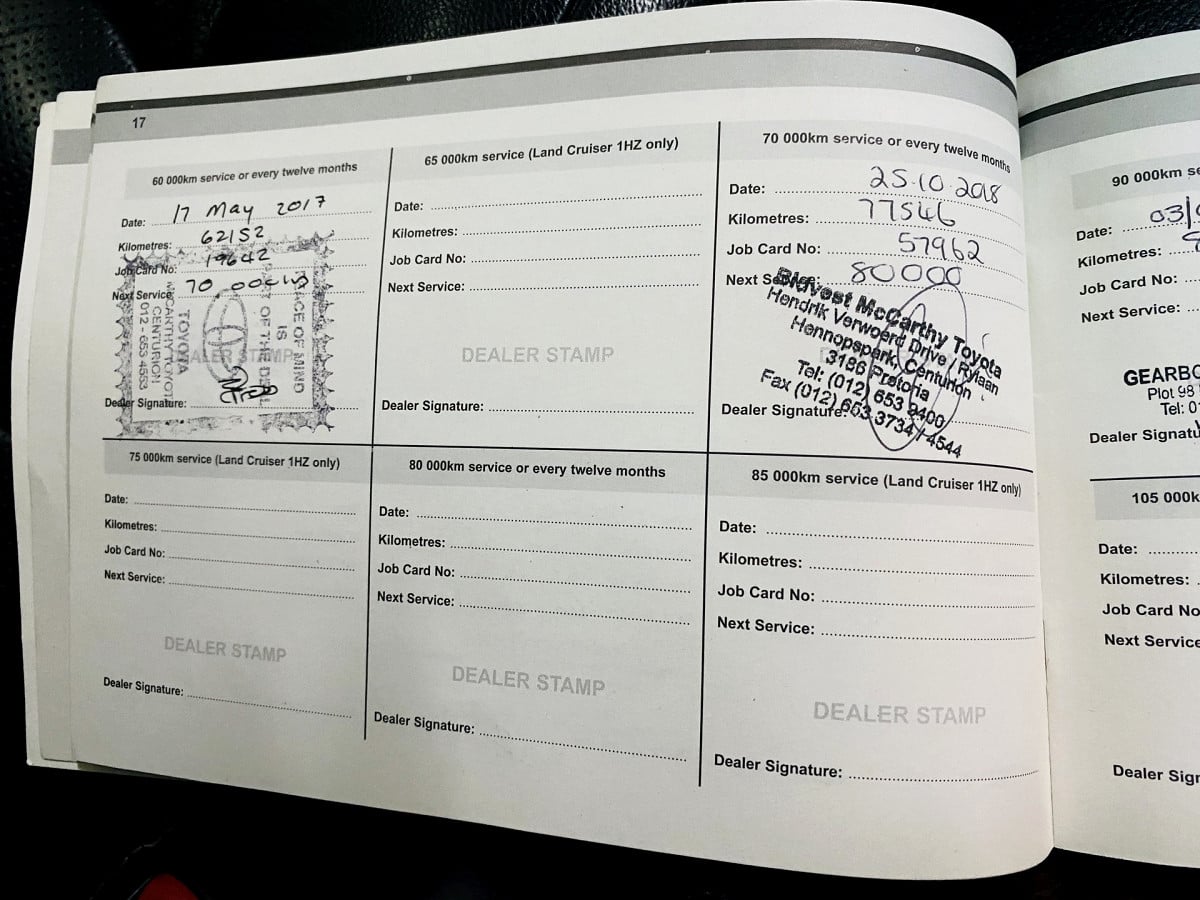 17
60 000km service or every twelve months
Date: 17 May 2017
Kilometres: 62152
Job Card No: 19642
Next Service: 70 000
PEACE OF MIND
IS
PART OF THE DEAL
TOYOTA
McCARTHY TOYOTA
CENTURION
012 - 653 4553
DEALER STAMP
Dealer Signature:
65 000km service (Land Cruiser 1HZ only)
Date:
Kilometres:
Job Card No:
Next Service:
DEALER STAMP
Dealer Signature:
70 000km service or every twelve months
Date: 25.10.2018
Kilometres: 77546
Job Card No: 57962
Next Service: 80000
Bidvest McCarthy Toyota
Hendrik Verwoerd Drive / Rylaan
Hennopspark, Centurion
3186 Pretoria
Tel: (012) 653 9400
Fax (012) 653 3734 / 4544
Dealer Signature:
75 000km service (Land Cruiser 1HZ only)
Date:
Kilometres:
Job Card No:
Next Service:
DEALER STAMP
Dealer Signature:
80 000km service or every twelve months
Date:
Kilometres:
Job Card No:
Next Service:
DEALER STAMP
Dealer Signature:
85 000km service (Land Cruiser 1HZ only)
Date:
Kilometres:
Job Card No:
Next Service:
DEALER STAMP
Dealer Signature:
90 000km se
Date: 03/
Kilometres:
Job Card No:
Next Service:
GEARBO
Plot 98
Tel: 0
Dealer Signatu
105 000k
Date:
Kilometres:
Job Card No
Next Service
Dealer Sign